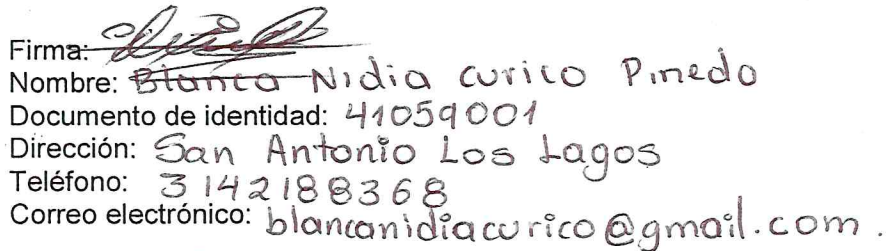 Firma:
Nombre: Blanca Nidia Curico Pinedo
Documento de identidad: 41059001
Dirección: San Antonio Los Lagos
Teléfono: 3142188368
Correo electrónico: blancanidiacurico@gmail.com.